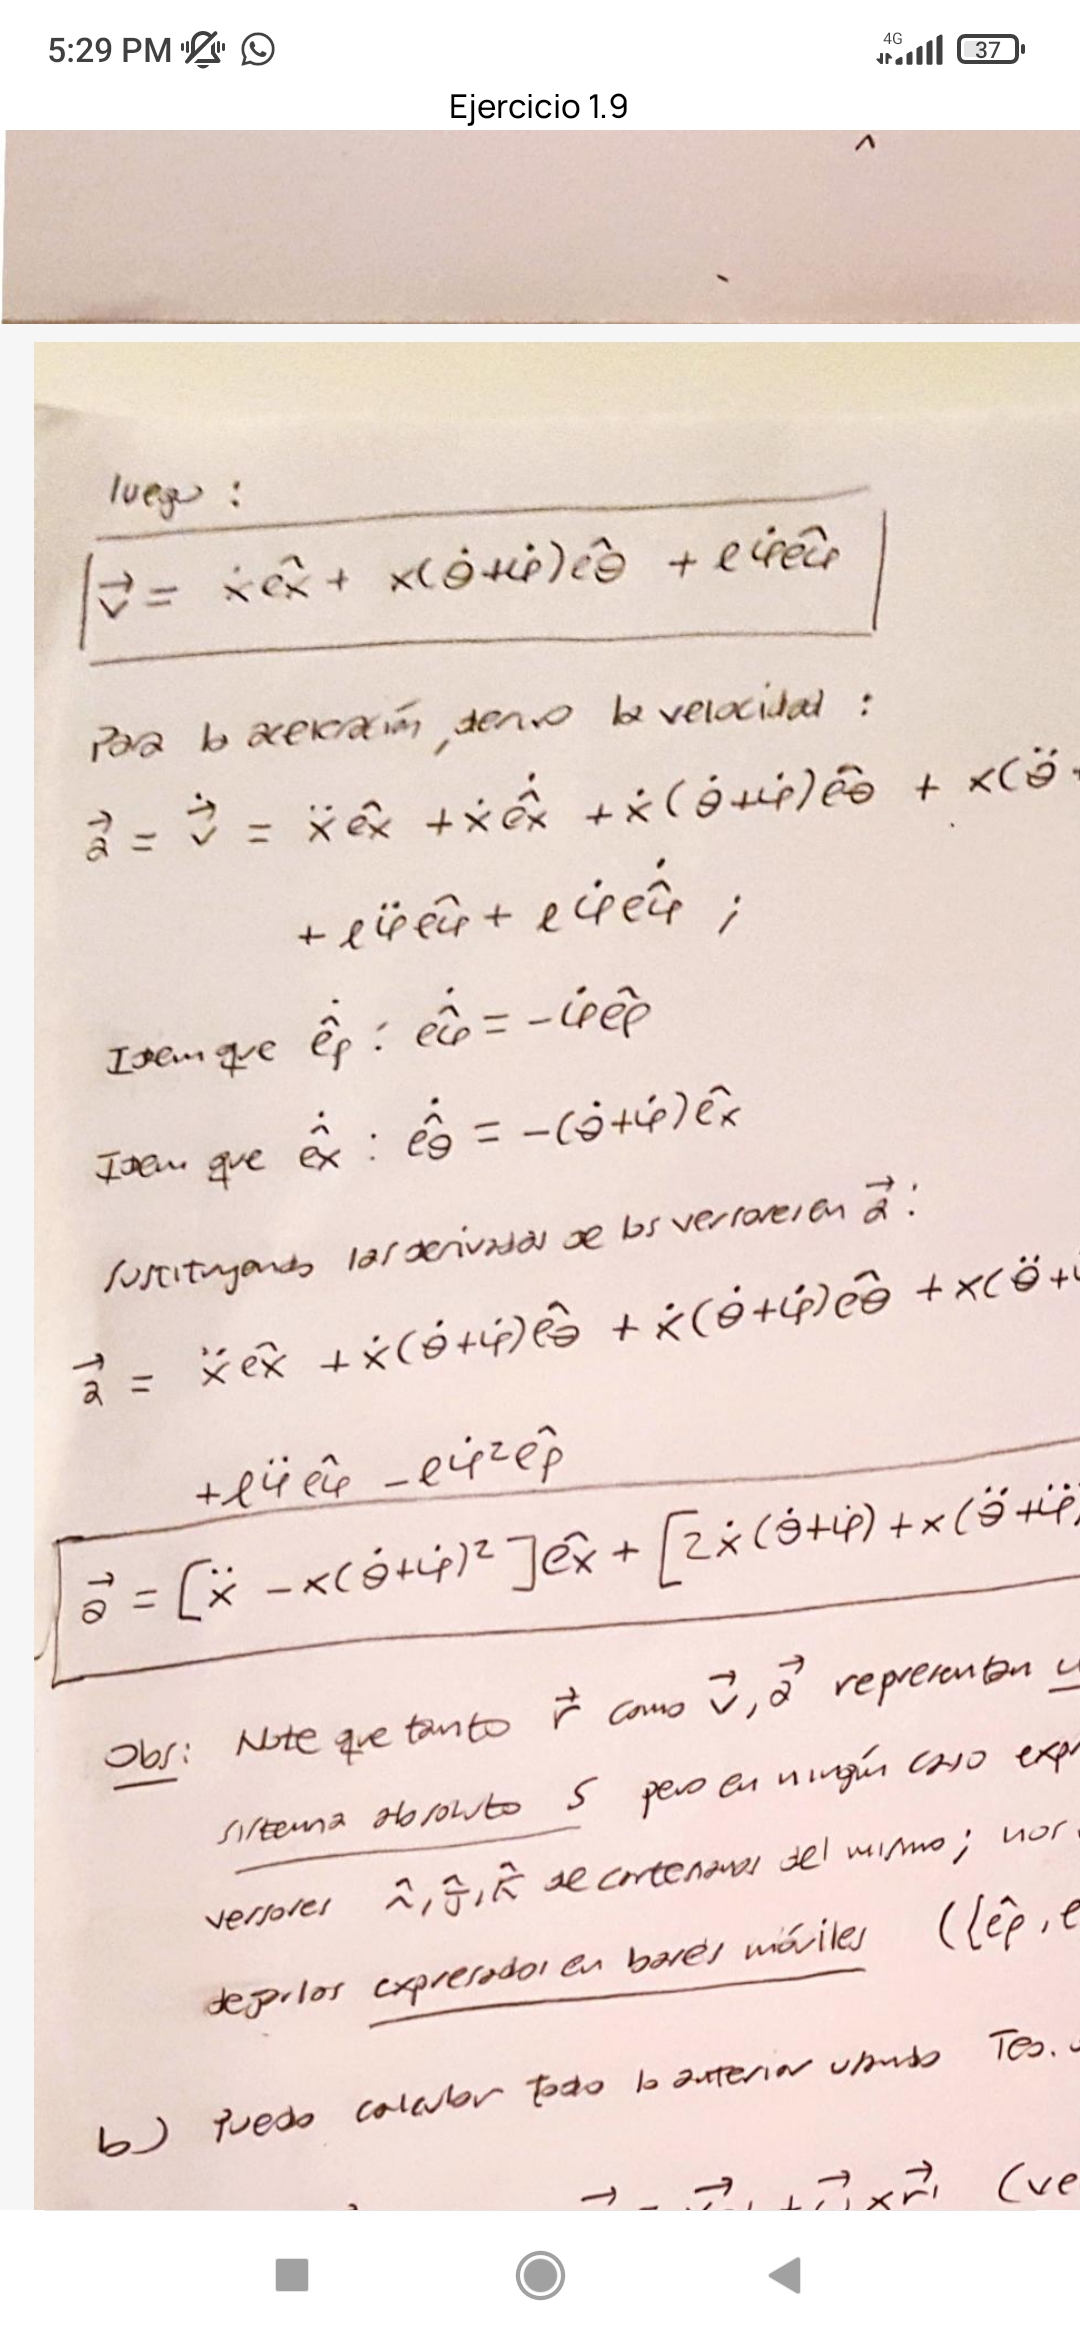 5:29 PM
4G
37
Ejercicio 1.9
luego :
v⃗ = ẋ êx + x(θ̇+φ̇) êθ + ℓ φ̇ êφ
Para la aceleración, derivo la velocidad :
a⃗ = v⃗̇ = ẍ êx + ẋ ê̇x + ẋ(θ̇+φ̇) êθ + x(θ̈ +
+ ℓ φ̈ êφ + ℓ φ̇ ê̇φ ;
Idem que ê̇ρ : ê̇φ = -φ̇ êρ
Idem que ê̇x : ê̇θ = -(θ̇+φ̇) êx
Sustituyendo las derivadas de los versores en a⃗ :
a⃗ = ẍ êx + ẋ(θ̇+φ̇) êθ + ẋ(θ̇+φ̇) êθ + x(θ̈+
+ ℓ φ̈ êφ - ℓ φ̇² êρ
a⃗ = [ẍ - x(θ̇+φ̇)²] êx + [2ẋ(θ̇+φ̇) + x(θ̈+φ̈)
Obs: Note que tanto r⃗ como v⃗, a⃗ representan
sistema absoluto S pero en ningún caso expr
versores î, ĵ, k̂ de cartesianas del mismo; nos
dejarlos expresados en bases móviles ({êρ, e
b) Puedo calcular todo lo anterior usando Teo.